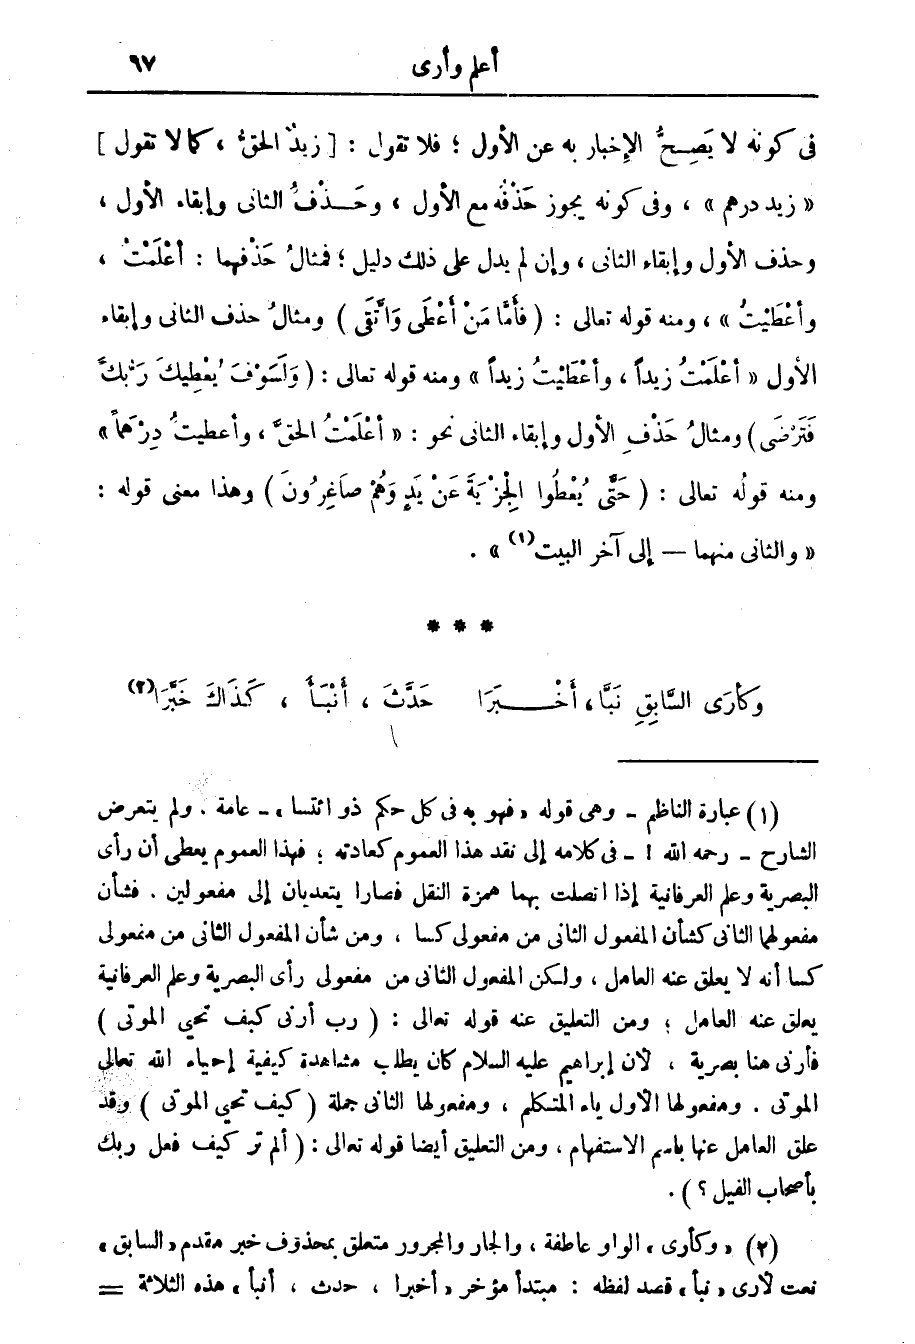 أعلم وأرى ٦٧
فى كونه لا يَصِحُّ الإخبار به عن الأول ؛ فلا تقول : [ زيدٌ الحقُّ ، كما لا تقول ]
« زيد درهم » ، وفى كونه يجوز حَذْفُه مع الأول ، وحَـذْفُ الثانى وإبقاء الأول ،
وحذف الأول وإبقاء الثانى ، وإن لم يدل على ذلك دليل ؛ فمثالُ حَذْفهما : أعْلَمْتُ ،
وأعْطَيْتُ » ، ومنه قوله تعالى : ( فأَمَّا مَنْ أَعْطَى وَاتَّقَى ) ومثالُ حذف الثانى وإبقاء
الأول « أعْلَمْتُ زيداً ، وأعْطَيْتُ زيداً » ومنه قوله تعالى : ( وَلَسَوْفَ يُعْطِيكَ رَبُّكَ
فَتَرْضَى ) ومثالُ حَذْفِ الأول وإبقاء الثانى نحو : « أعْلَمْتُ الحقَّ ، وأعطيتُ دِرْهَماً »
ومنه قولُه تعالى : ( حَتَّى يُعْطُوا الجِزْيَةَ عَنْ يَدٍ وَهُمْ صاَغِرُونَ ) وهذا معنى قوله :
« والثانى منهما — إلى آخر البيت(١) » .
* * *
وَكأَرَى السَّابِقِ نَبَّا ، أَخْـبَرَا حَدَّثَ ، أَنْبَـأَ ، كَذَاكَ خَبَّرَا(٢)
(١) عبارة الناظم - وهى قوله « فهو به فى كل حكم ذو ائتسا » - عامة . ولم يتعرض
الشارح - رحمه الله ! - فى كلامه إلى نقد هذا العموم كعادته ؛ فهذا العموم يعطى أن رأى
البصرية وعلم العرفانية إذا اتصلت بهما همزة النقل فصارا يتعديان إلى مفعولين . فشأن
مفعولهما الثانى كشأن المفعول الثانى من مفعولى كسا ، ومن شأن المفعول الثانى من مفعولى
كسا أنه لا يعلق عنه العامل ، ولكن المفعول الثانى من مفعولى رأى البصرية وعلم العرفانية
يعلق عنه العامل ؛ ومن التعليق عنه قوله تعالى : ( رب أرنى كيف تحي الموتى )
فأرنى هنا بصرية ، لأن إبراهيم عليه السلام كان يطلب مشاهدة كيفية إحياء الله تعالى
الموتى . ومفعولها الأول ياء المتكلم ، ومفعولها الثانى جملة ( كيف تحي الموتى ) وقد
علق العامل عنها باسم الاستفهام ، ومن التعليق أيضا قوله تعالى : ( ألم تر كيف فعل ربك
بأصحاب الفيل ؟ ) .
(٢) « وكأرى » الواو عاطفة ، والجار والمجرور متعلق بمحذوف خبر مقدم « السابق »
نعت لأرى « نبأ » قصد لفظه : مبتدأ مؤخر « أخبرا ، حدث ، أنبأ » هذه الثلاثة =